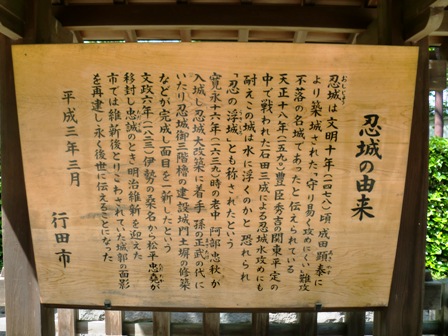 忍城の由来
おしじょう
忍城は文明十年(一四七八)頃成田顕泰に
より築城された「守り易く攻めにくい難攻
不落の名城であった」と伝えられている
天正十八年(一五九〇)豊臣秀吉の関東平定の
中で戦われた石田三成による忍城水攻めにも
耐えこの城は水に浮くのかと恐れられ
「忍の浮城」とも称されたという
寛永十六年(一六三九)時の老中阿部忠秋が
入城し忍城大改築に着手孫の正武の代に
いたり忍城御三階櫓の建設城門土塀の修築
などが完成し面目を一新したという
文政六年(一八二三)伊勢の桑名から松平忠堯が
移封し忠誠のとき明治維新を迎えた
市では維新後とりこわされていた城郭の面影
を再建し永く後世に伝えることになった
平成三年三月
行田市